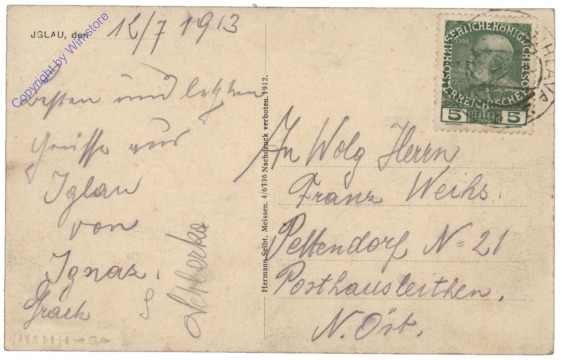 JGLAU, den 12/7 1913
Copyright by Winstore
besten und letzten
Grüsse aus
Iglau
von
Ignaz.
Hermann Seibt, Meissen. 4/6336 Nachdruck verboten. 1912.
K.K.ÖSTERREICHISCHE
5 HELLER 5
Wolg Herrn
Franz Weihs.
Pettendorf N=21
Posthausleithen.
N. Öst.